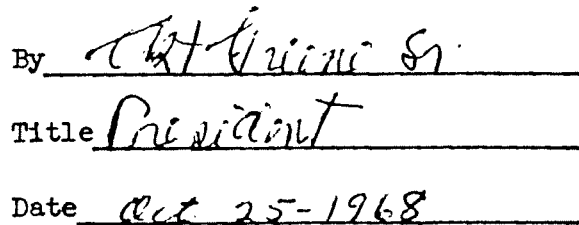 By Sr.
Title President
Date Oct 25-1968